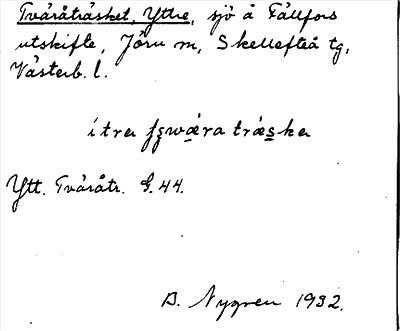 Tväråträsket, Yttre, sjö å Fällfors
utskifte, Jörn sn, Skellefteå tg,
Västerb. l.
ítra fʒwǽra trǽska
Ytt. Tväråtr. G. 44.
B. Nygren 1932.